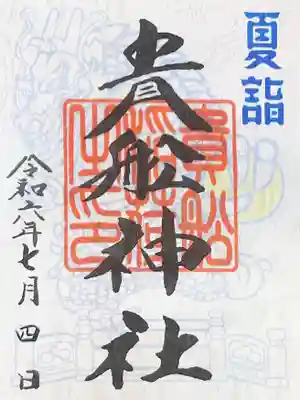 夏詣
貴船神社
令和六年七月四日